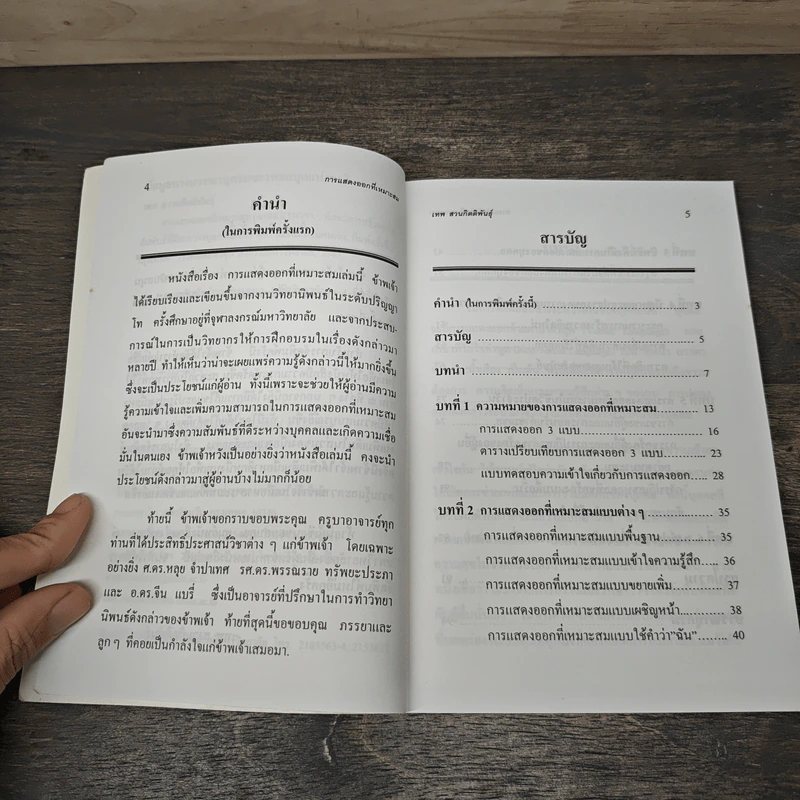 4
การแสดงออกที่เหมาะสม
คำนำ
(ในการพิมพ์ครั้งแรก)
หนังสือเรื่อง การแสดงออกที่เหมาะสมเล่มนี้ ข้าพเจ้า
ได้เรียบเรียงและเขียนขึ้นจากงานวิทยานิพนธ์ในระดับปริญญา
โท ครั้งศึกษาอยู่ที่จุฬาลงกรณ์มหาวิทยาลัย และจากประสบ-
การณ์ในการเป็นวิทยากรให้การฝึกอบรมในเรื่องดังกล่าวมา
หลายปี ทำให้เห็นว่าน่าจะเผยแพร่ความรู้ดังกล่าวนี้ให้มากยิ่งขึ้น
ซึ่งจะเป็นประโยชน์แก่ผู้อ่าน ทั้งนี้เพราะจะช่วยให้ผู้อ่านมีความ
รู้ความเข้าใจและเพิ่มความสามารถในการแสดงออกที่เหมาะสม
อันจะนำมาซึ่งความสัมพันธ์ที่ดีระหว่างบุคคลและเกิดความเชื่อ
มั่นในตนเอง ข้าพเจ้าหวังเป็นอย่างยิ่งว่าหนังสือเล่มนี้ คงจะนำ
ประโยชน์ดังกล่าวมาสู่ผู้อ่านบ้างไม่มากก็น้อย
ท้ายนี้ ข้าพเจ้าขอกราบขอบพระคุณ ครูบาอาจารย์ทุก
ท่านที่ได้ประสิทธิ์ประศาสน์วิชาต่าง ๆ แก่ข้าพเจ้า โดยเฉพาะ
อย่างยิ่ง ศ.ดร.หลุย จำปาเทศ รศ.ดร.พรรณราย ทรัพยะประภา
และ อ.ดร.จีน แบรี่ ซึ่งเป็นอาจารย์ที่ปรึกษาในการทำวิทยา
นิพนธ์ดังกล่าวของข้าพเจ้า ท้ายที่สุดนี้ขอขอบคุณ ภรรยาและ
ลูก ๆ ที่คอยเป็นกำลังใจแก่ข้าพเจ้าเสมอมา.
เทพ สงวนกิตติพันธุ์ 5
สารบัญ
คำนำ (ในการพิมพ์ครั้งนี้) ........................... 3
สารบัญ ........................................ 5
บทนำ ........................................ 7
บทที่ 1 ความหมายของการแสดงออกที่เหมาะสม........... 13
การแสดงออก 3 แบบ........................ 16
ตารางเปรียบเทียบการแสดงออก 3 แบบ........... 23
แบบทดสอบความเข้าใจเกี่ยวกับการแสดงออก...... 28
บทที่ 2 การแสดงออกที่เหมาะสมแบบต่าง ๆ ............... 35
การแสดงออกที่เหมาะสมแบบพื้นฐาน............ 35
การแสดงออกที่เหมาะสมแบบเข้าใจความรู้สึก...... 36
การแสดงออกที่เหมาะสมแบบขยายเพิ่ม............ 37
การแสดงออกที่เหมาะสมแบบเผชิญหน้า........... 38
การแสดงออกที่เหมาะสมแบบใช้คำว่า"ฉัน"........ 40